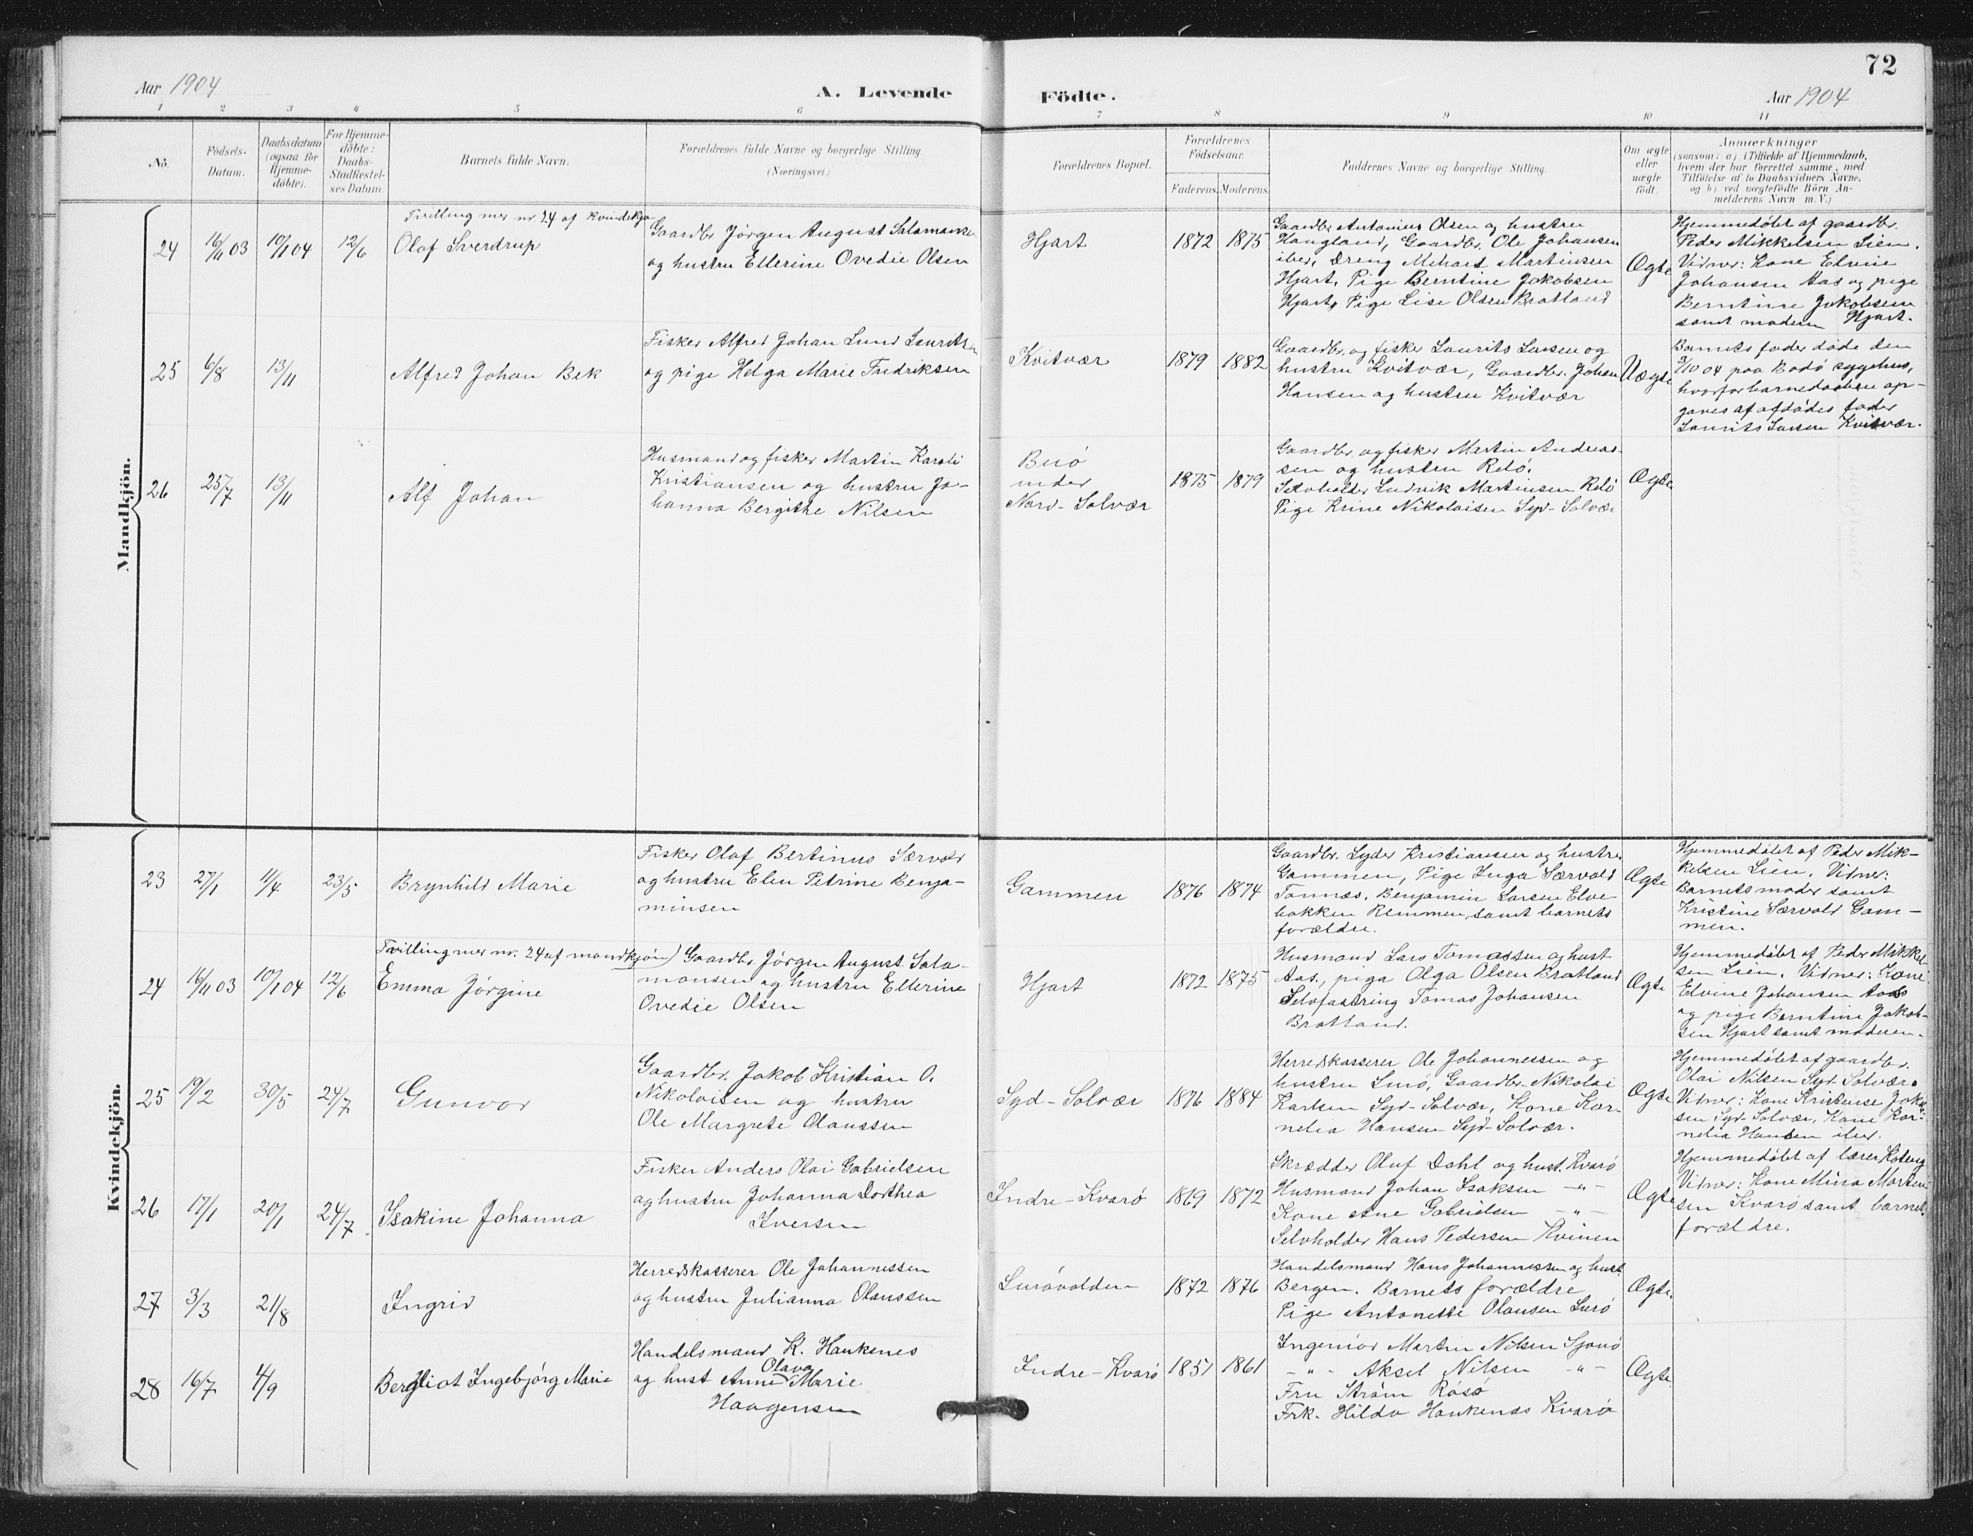 72
Aar 1904
A. Levende
Födte.
Aar 1904
1 2 3 4 5 6 7 8 9 10 11
No.
Födsels-
Datum.
Daabsdatum
(ogsaa for
Hjemme-
döbte).
For Hjemme-
döbte:
Daabs-
Stadfæstel-
ses Datum.
Barnets fulde Navn.
Forældrenes fulde Navne og borgerlige Stilling.
(Næringsvei.)
Forældrenes Bopæl.
Forældrenes
Födselsaar.
Faderens. Moderens.
Faddernes Navne og borgerlige Stilling.
Om ægte
eller
uægte
födt.
Anmærkninger
(saasom: a) i Tilfælde af Hjemmedaab,
hvem der har forrettet samme, med
Tilföielse af to Daabsvidners Navne,
og b) ved uægtefödte Börn An-
melderens Navn m. V.)
Mandkjön.
24
16/11 03
10/1 04
12/6
Tvilling mer nr 24 af kvindekjø
Olaf Sverdrup
Gaardbr Jørgen August Salamonsen
og hustru Ellerine Ovedie Olsen
Hjart
1872 1875
Gaardbr. Antonius Olsen og hustru
Haugland, Gaardbr. Ole Johansen
ibid, Dreng Mikael Martinsen
Hjart, Pige Berntine Jakobsen
Hjart, Pige Lise Olsen Bratland
Ægte
Hjemmedøbt af gaardbr.
Peder Mikkelsen Lien.
Vidner: Kone Elvine
Johansen Aas og pige
Berntine Jakobsen
samt modern Hjart.
25
6/8
13/11
Alfred Johan Bek
Fisker Alfred Johan Lund Lauritsen
og pige Helga Marie Fredriksen
Kvitvær
1879 1882
Gaardbr. og fisker Laurits Larsen og
hustru Kvitvær, Gaardbr. Johan
Hansen og hustru Kvitvær
Uægte
Barnets fader døde den
3/10 04 paa Bodø sygehus,
hvorfor barnedaaben op-
gaves af afdødes fader
Laurits Larsen Kvitvær.
26
25/7
13/11
Alf Johan
Husmand og fisker Martin Karoli
Kristiansen og hustru Jo-
hanna Bergithe Nilsen
Buø
under
Nord-Solvær
1875 1879
Gaardbr. og fisker Martin Andreas-
sen og hustru Relø.
Selvholder Ludvik Martinsen Relø
Pige Krine Nikolaisen Syd-Solvær
Ægte
Kvindekjön.
23
27/1
4/4
23/5
Brynhild Marie
Fisker Olaf Bertinus Særvold
og hustru Elen Petrine Benja-
minsen
Gammen
1876 1874
Gaardbr. Lyder Kristiansen og hustru
Gammen, Pige Inga Særvold
Tonnes, Benjamin Larsen Elve-
bakken Remmen, samt barnets
forældre.
Ægte
Hjemmedøbt af Peder Mik-
kelsen Lien. Vidner:
Barnets moder samt
Kristine Særvold Gam-
men.
24
16/11 03
10/1 04
12/6
Tvilling mer nr. 24 af mandkjøn)
Emma Jørgine
Gaardbr. Jørgen August Sala-
monsen og hustru Ellerine
Ovedie Olsen
Hjart
1872 1875
Husmand Lars Tomassen og hust
Aas, pige Olga Olsen Bratland
Selvfostring Tomas Johansen
Bratland.
Ægte
Hjemmedøbt af Peder Mikkel-
sen Lien. Vidner: Kone
Elvine Johansen Aas
og pige Berntine Jakob-
sen Hjart samt moderen.
25
19/2
30/5
24/7
Gunvor
Gaardbr. Jakob Kristian O.
Nikolaisen og hustru
Ole Margrete Olaussen
Syd-Solvær
1876 1884
Herredskasserer Ole Johannessen og
hustru Lurø, Gaardbr. Nikolai
Karlsen Syd-Solvær, Kone Kor-
nelia Hansen Syd-Solvær.
Ægte
Hjemmedøbt af gaardbr.
Olai Nilsen Syd-Solvær.
Vidner: Kone Kristense Jakob-
sen Syd-Solvær, Kone Kor-
nelia Hansen ibid.
26
17/1
20/1
24/7
Isakine Johanna
Fisker Anders Olai Gabrielsen
og hustru Johanna Dorthea
Iversen
Indre-Kvarø
1869 1872
Skrædder Oluf Dahl og hust. Kvarø
Husmand Johan Isaksen -"-
Kone Ane Gabrielsen -"-
Selvholder Hans Pedersen Kvinen
Ægte
Hjemmedøbt af lærer
Vidner: Kone Mina Morten-
sen Kvarø samt barnets
forældre.
27
3/3
21/8
Ingrid
Herredskasserer Ole Johannessen
og hustru Julianna Olaussen
Lurøvolden
1872 1876
Handelsmand Hans Johannessen og hust.
Bergen. Barnets forældre
Pige Antonette Olausen Lurø
Ægte.
28
16/7
4/9
Bergliot Ingebjørg Marie
Handelsmand K. Haukenes
Olava
og hust Anne Marie
Haagensen
Indre-Kvarø
1851 1861
Ingeniør Martin Nilsen Sjonø
-"- Aksel Nilsen -"-
Fru Strøm Røsø
Frk. Hilda Haukenæs Kvarø
Ægte.